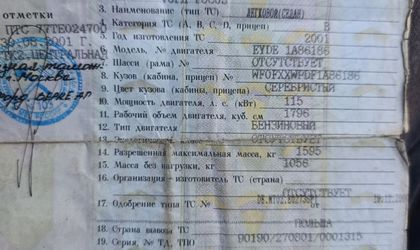 3. Наименование (тип ТС) ЛЕГКОВОЙ(СЕДАН)
4. Категория ТС (A, B, C, D, прицеп) B
5. Год изготовления ТС 2001
6. Модель, № двигателя EYDE 1A86186
7. Шасси (рама) № ОТСУТСТВУЕТ
8. Кузов (кабина, прицеп) № WF0FXXWPDF1A86186
9. Цвет кузова (кабины, прицепа) СЕРЕБРИСТЫЙ
10. Мощность двигателя, л. с. (кВт) 115
11. Рабочий объем двигателя, куб. см 1796
12. Тип двигателя БЕНЗИНОВЫЙ
ОТСУТСТВУЕТ
14. Разрешенная максимальная масса, кг 1595
15. Масса без нагрузки, кг 1056
16. Организация–изготовитель ТС (страна)
ОТСУТСТВУЕТ
17. Одобрение типа ТС №
ПОЛЬША
18. Страна вывоза ТС
90190/270801/0001315
19. Серия, № ТД, ТПО
ПТС 77ТЕ024700